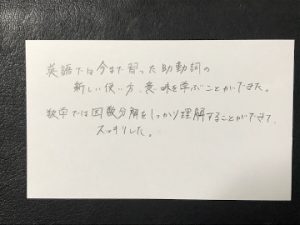 英語では今まで習った助動詞の
新しい使い方、意味を学ぶことができた。
数学では因数分解をしっかり理解することができて、
スッキリした。